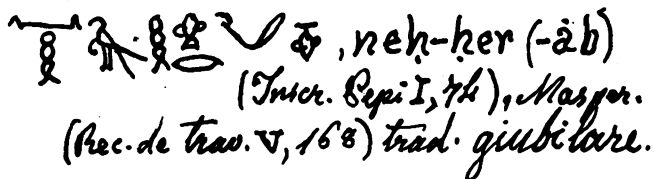 , neḥ-ḥer (-âb)
(Inscr. Pepi I, 74), Masper.
(Rec. de trav. V, 168) trad. giubilare.